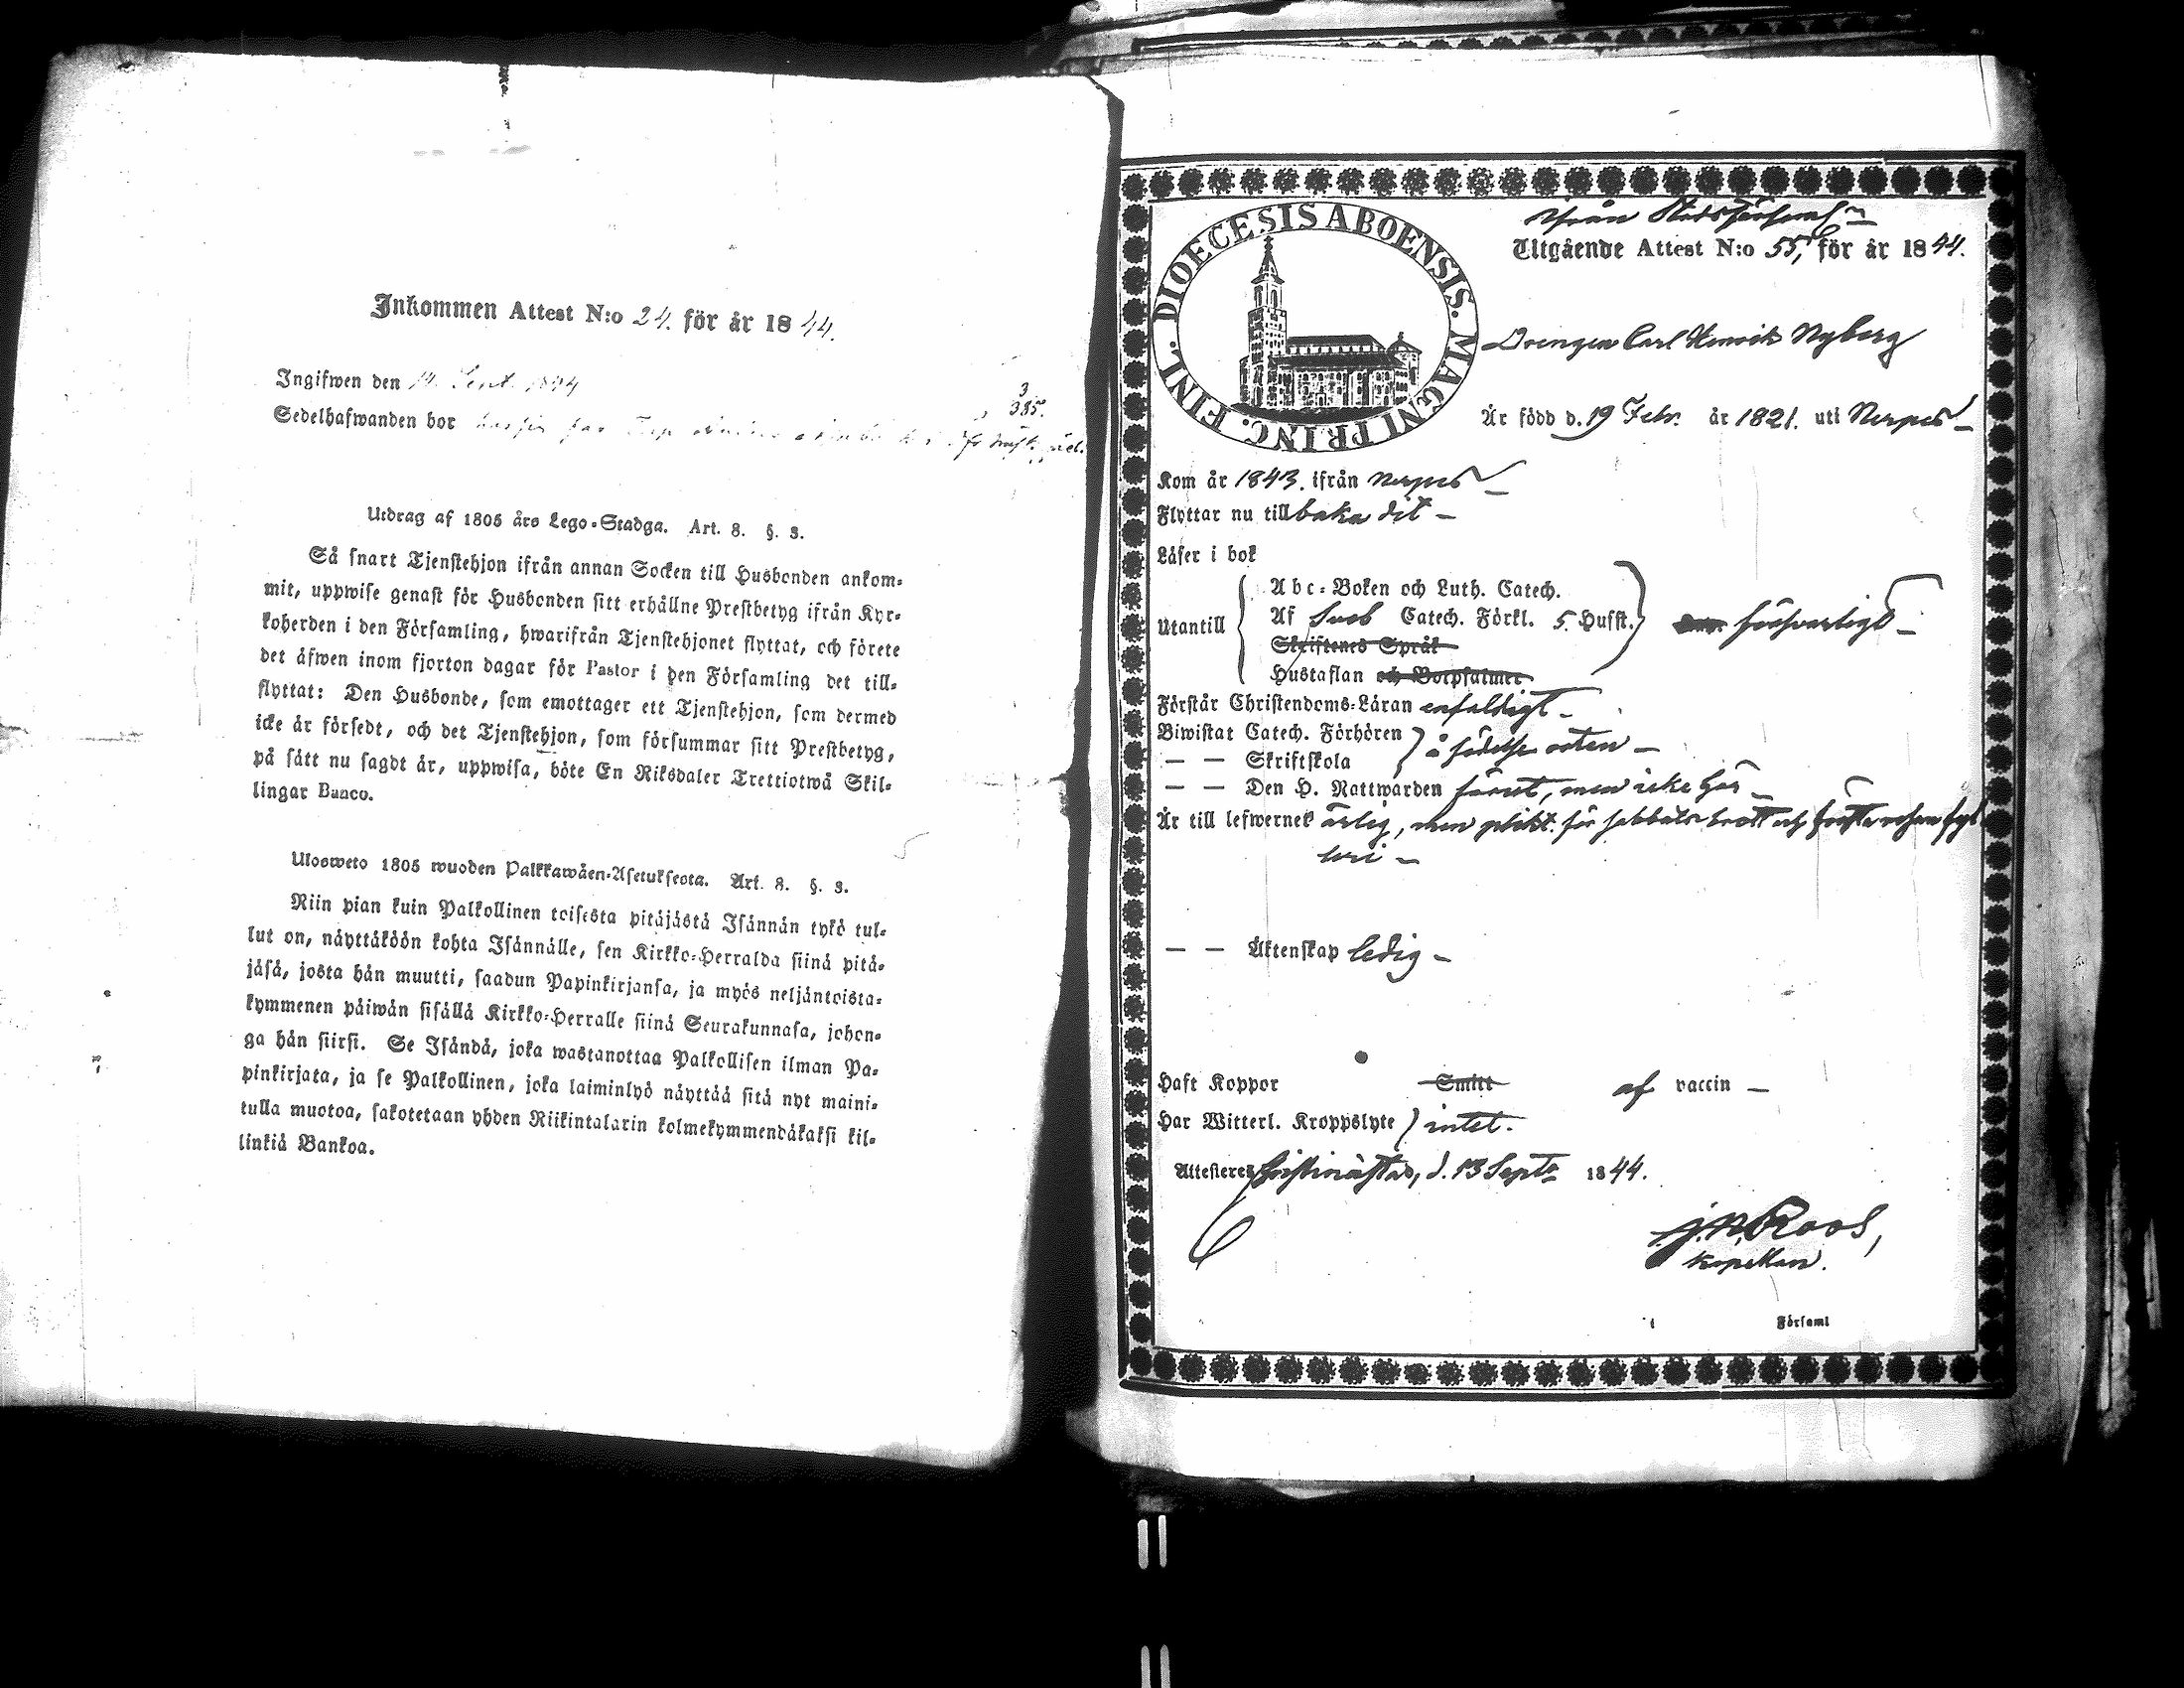 Inkommen Attest N:o 24. för år 1844.
Ingifwen den 14 Sept. 1844
3
385.
Sedelhafwanden bor
Utdrag af 1805 års Lego-Stadga. Art. 8. §. 3.
Så snart Tjenstehjon ifrån annan Socken till Husbonden ankom-
mit, uppwise genast för Husbonden sitt erhållne Prestbetyg ifrån Kyr-
koherden i den Församling, hwarifrån Tjenstehjonet flyttat, och förete
det äfwen inom fjorton dagar för Pastor i den Församling det till-
flyttat: Den Husbonde, som emottager ett Tjenstehjon, som dermed
icke är försedt, och det Tjenstehjon, som försummar sitt Prestbetyg,
på sätt nu sagdt är, uppwisa, böte En Riksdaler Trettiotwå Skil-
lingar Banco.
Ulosweto 1805 wuoden Palkkawäen-Asetuksesta. Art. 8. §. 3.
Niin pian kuin Palkollinen toisesta pitäjästä Isännän tykö tul-
lut on, näyttäköön kohta Isännälle, sen Kirkko-Herralda siinä pitä-
jäsä, josta hän muutti, saadun Papinkirjansa, ja myös neljäntoista-
kymmenen päiwän sisällä Kirkko-Herralle siinä Seurakunnasa, johon-
ga hän siirsi. Se Isändä, joka wastanottaa Palkollisen ilman Pa-
pinkirjata, ja se Palkollinen, joka laiminlyö näyttää sitä nyt maini-
tulla muotoa, sakotetaan yhden Riikintalarin kolmekymmendäkaksi kil-
linkiä Bankoa.
DIOECESIS ABOENSIS. MAGNI PRINC. FINL.
ifrån Stadsförsaml
Utgående Attest N:o 55, för år 1844.
Drengen Carl Henrik Nyberg
Är född d. 19 Febr. år 1821. uti Nerpes
Kom år 1843. ifrån Nerpes
Flyttar nu tillbaka dit
Läser i bok
Abc-Boken och Luth. Catech.
Utantill Af Sveb Catech. Förkl. 5. Hufst. försvarligt
Skriftenes Språk
Hustaflan och Botpsalmer
Förstår Christendoms-Läran enfaldigt
Biwistat Catech. Förhören
— — Skriftskola å födelse orten
— — Den H. Nattwarden förut, men icke här
Är till lefwernet ärlig, men plikt. för sabbats brott och
leri
— — Äktenskap ledig
Haft Koppor Smitt af vaccin —
Har Witterl. Kroppslyte intet.
Attesteres Christinæstad, d. 13 Sept. 1844.
J. N. Roos,
Kapellan.
Församl